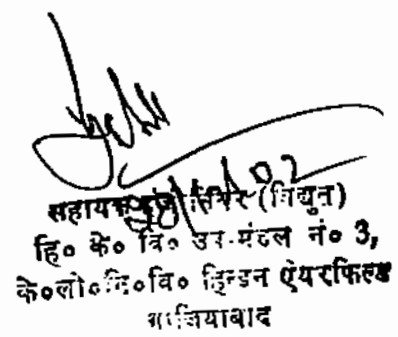 सहायक (विद्युत)
हि० के० वि० उप-मंडल नं० 3,
के०लो०नि०वि० हिन्डन ऐयरफिल्ड
गाजियाबाद